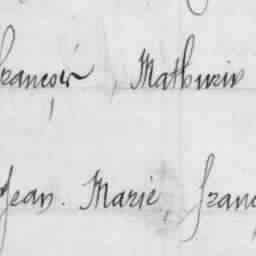 François, Mathurin
Jean. Marie, Franç